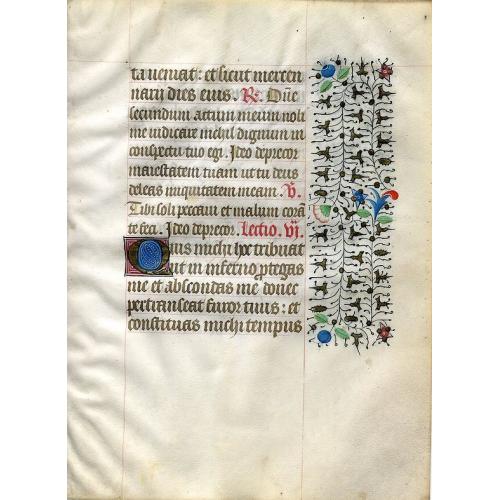 ta veniat: et sicut mercen
narij dies eius. R. Dn̄e
secundum actum meum noli
me iudicare nichil dignum in
conspectu tuo egi. Ideo deprecor
maiestatem tuam ut tu deus
deleas iniquitatem meam. V.
Tibi soli peccaui et malum corā
te feci. Ideo deprecor. Lectio. vj.
Quis michi hoc tribuat
ut in inferno ꝓtegas
me et abscondas me donec
pertranseat furor tuus: et
constituas michi tempus